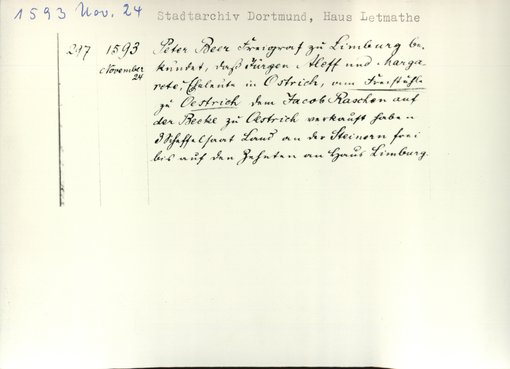 1593 Nov. 24
Stadtarchiv Dortmund, Haus Letmathe
297 1593 Peter Beer Freigraf zu Limburg be-
November kundet, daß Jürgen Aleff und Marga-
24 rete, Eheleute in Östrich, vom Freistuhle
zu Oestrich dem Jacob Raschen auf
der Becke zu Oestrich verkauft haben
3 Scheffelsaat Land an der Steinern frei
bis auf den Zehnten an Haus Limburg.